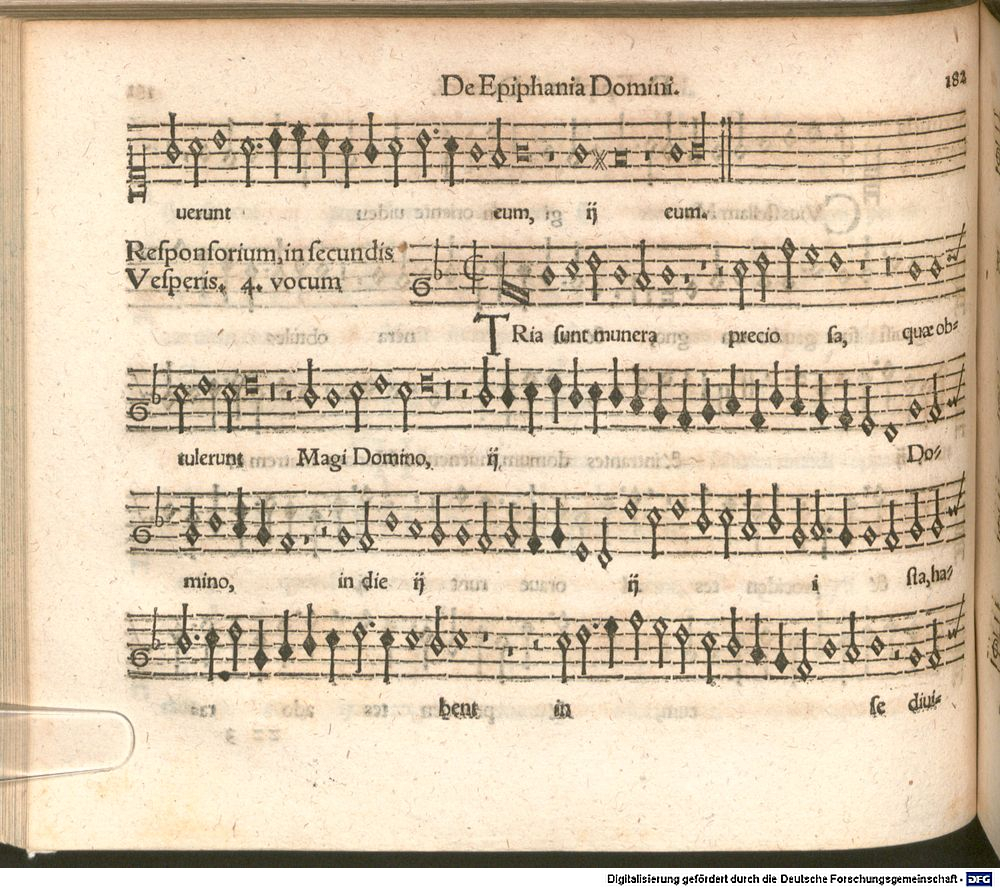 De Epiphania Domini. 182
uerunt eum, ij eum.
Responsorium, in secundis
Vesperis. 4. vocum
TRia sunt munera precio sa, quæ ob-
tulerunt Magi Domino, ij Do-
mino, in die ij ij i sta, ha-
bent in se diui-
Digitalisierung gefördert durch die Deutsche Forschungsgemeinschaft - DFG